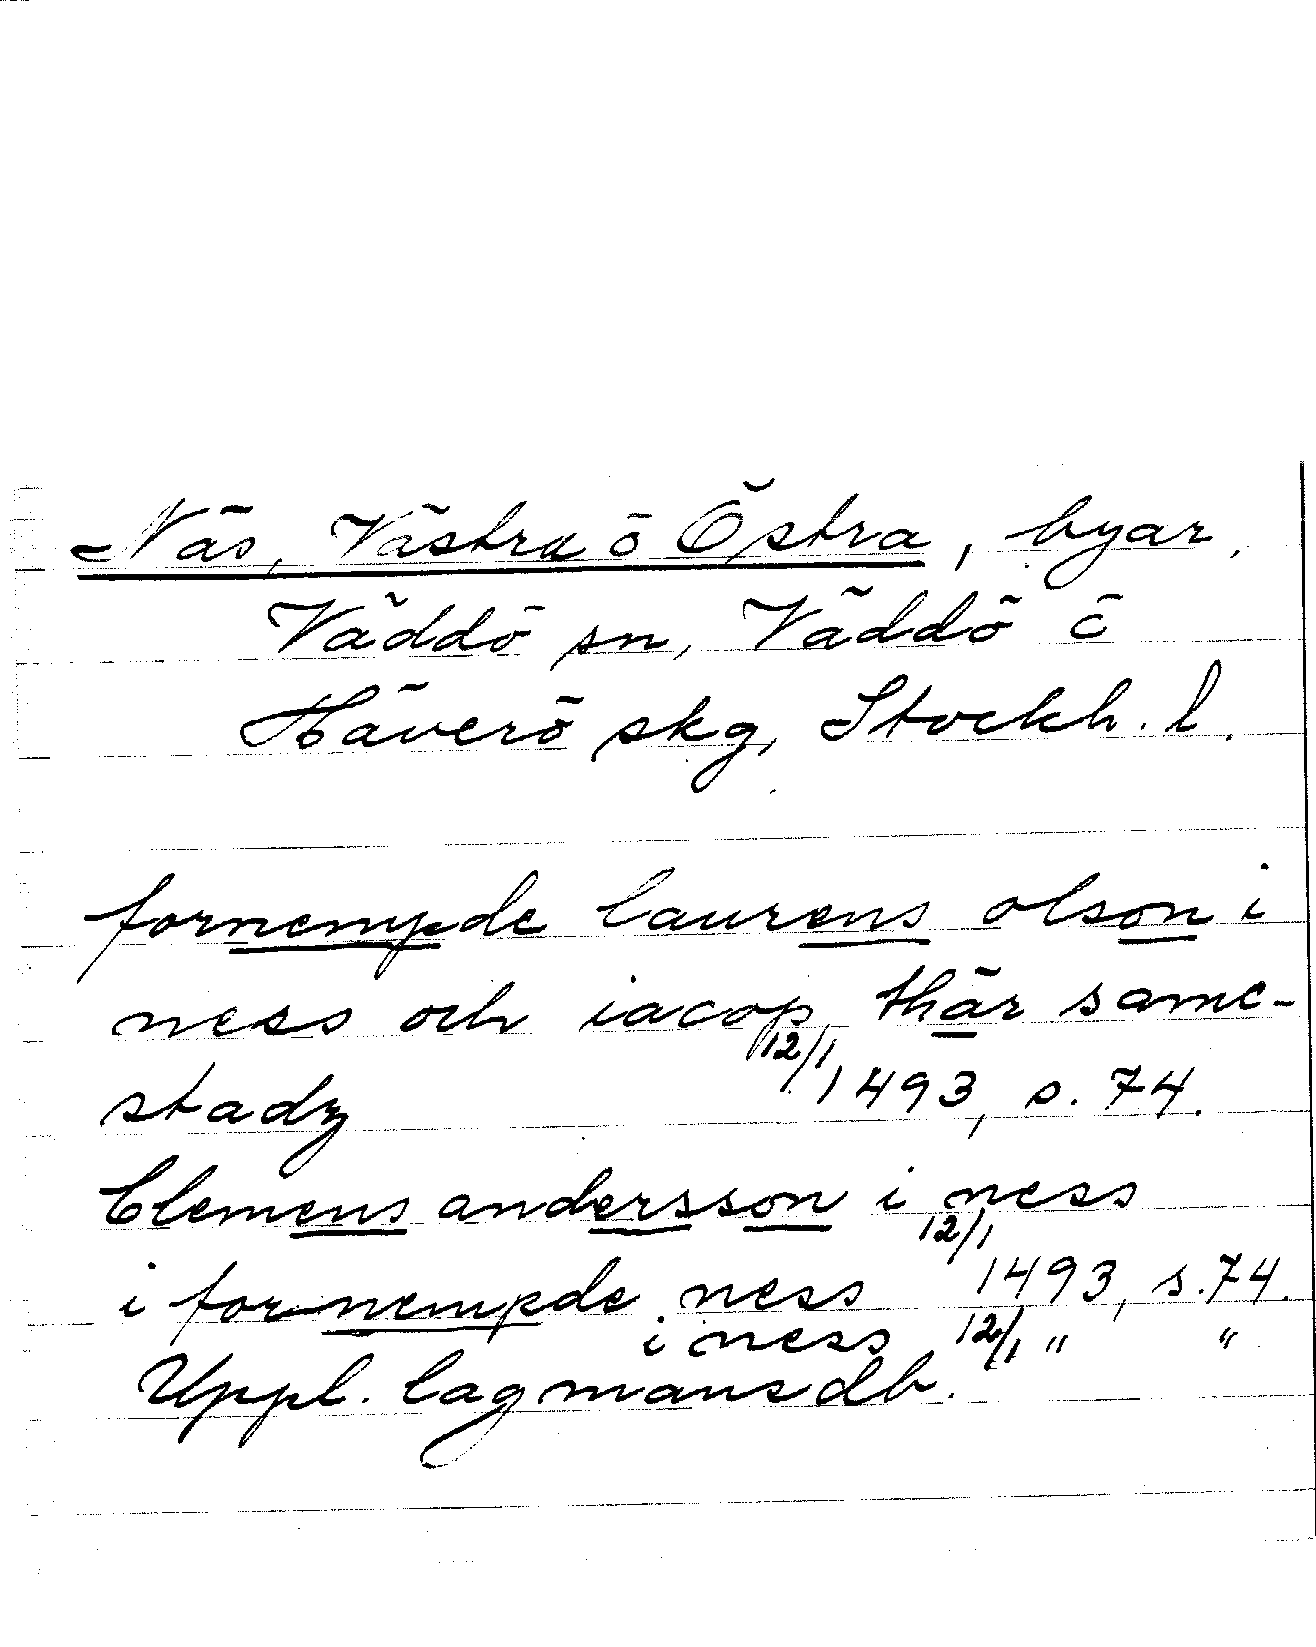 Näs, Västra o Östra, byar,
Väddö sn, Väddö o
Häverö skg, Stockh. l.
fornempde laurens olson i
ness och iacop thär same-
stadz 12/1 1493, s. 74.
Clemens andersson i ness
i fornempde ness 12/1 1493, s. 74.
i ness 12/1 " "
Uppl. lagmansdb.